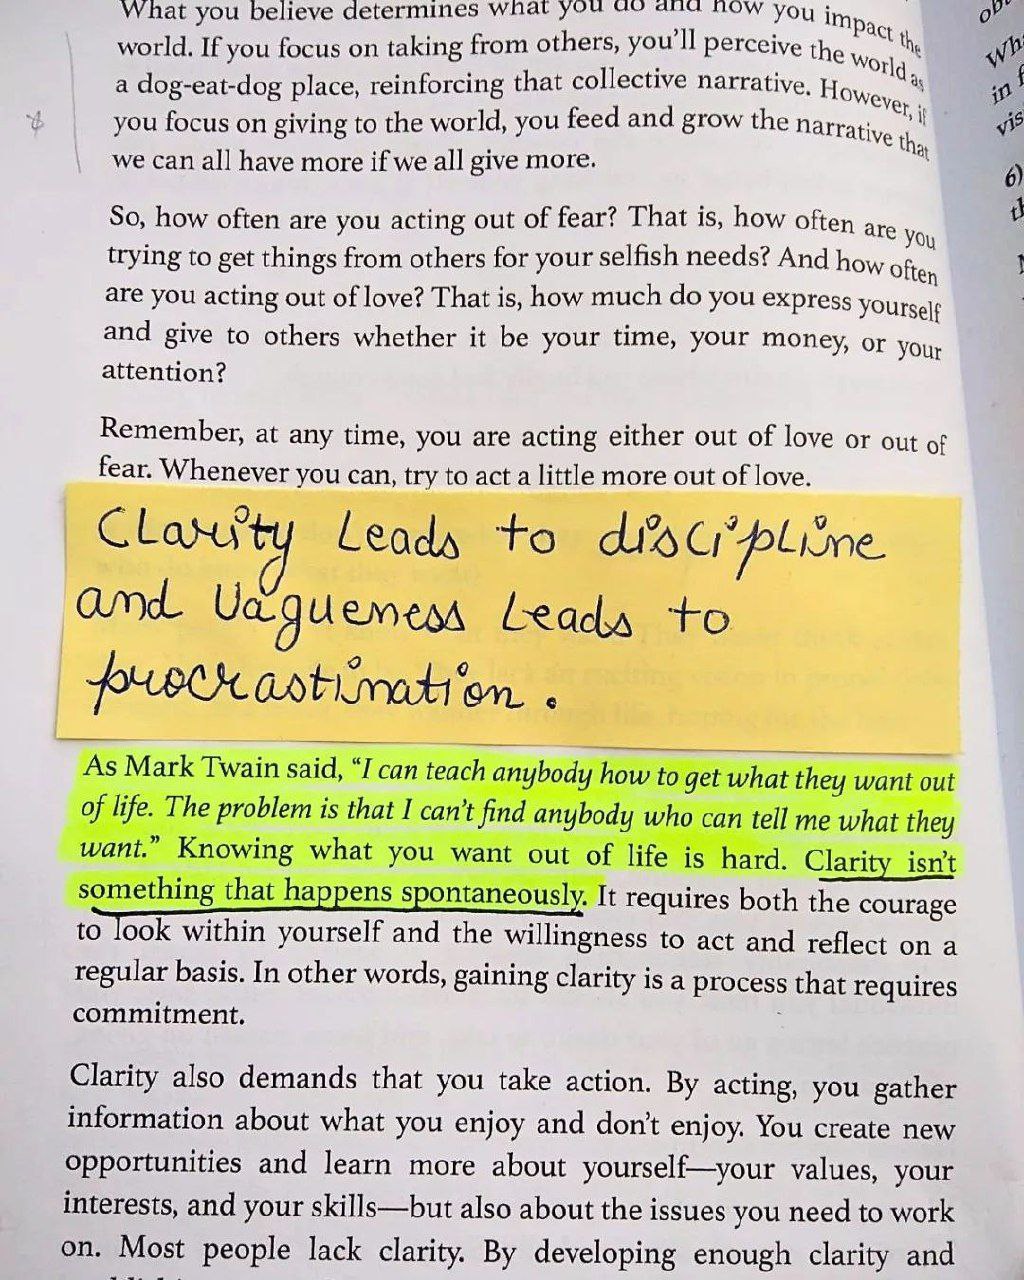 What you believe determines what you do and how you impact the
world. If you focus on taking from others, you'll perceive the world as
a dog-eat-dog place, reinforcing that collective narrative. However, if
you focus on giving to the world, you feed and grow the narrative that
we can all have more if we all give more.
So, how often are you acting out of fear? That is, how often are you
trying to get things from others for your selfish needs? And how often
are you acting out of love? That is, how much do you express yourself
and give to others whether it be your time, your money, or your
attention?
Remember, at any time, you are acting either out of love or out of
fear. Whenever you can, try to act a little more out of love.
Clarity Leads to discipline
and Vagueness Leads to
procrastination.
As Mark Twain said, “I can teach anybody how to get what they want out
of life. The problem is that I can't find anybody who can tell me what they
want.” Knowing what you want out of life is hard. Clarity isn't
something that happens spontaneously. It requires both the courage
to look within yourself and the willingness to act and reflect on a
regular basis. In other words, gaining clarity is a process that requires
commitment.
Clarity also demands that you take action. By acting, you gather
information about what you enjoy and don't enjoy. You create new
opportunities and learn more about yourself—your values, your
interests, and your skills—but also about the issues you need to work
on. Most people lack clarity. By developing enough clarity and
in
6)